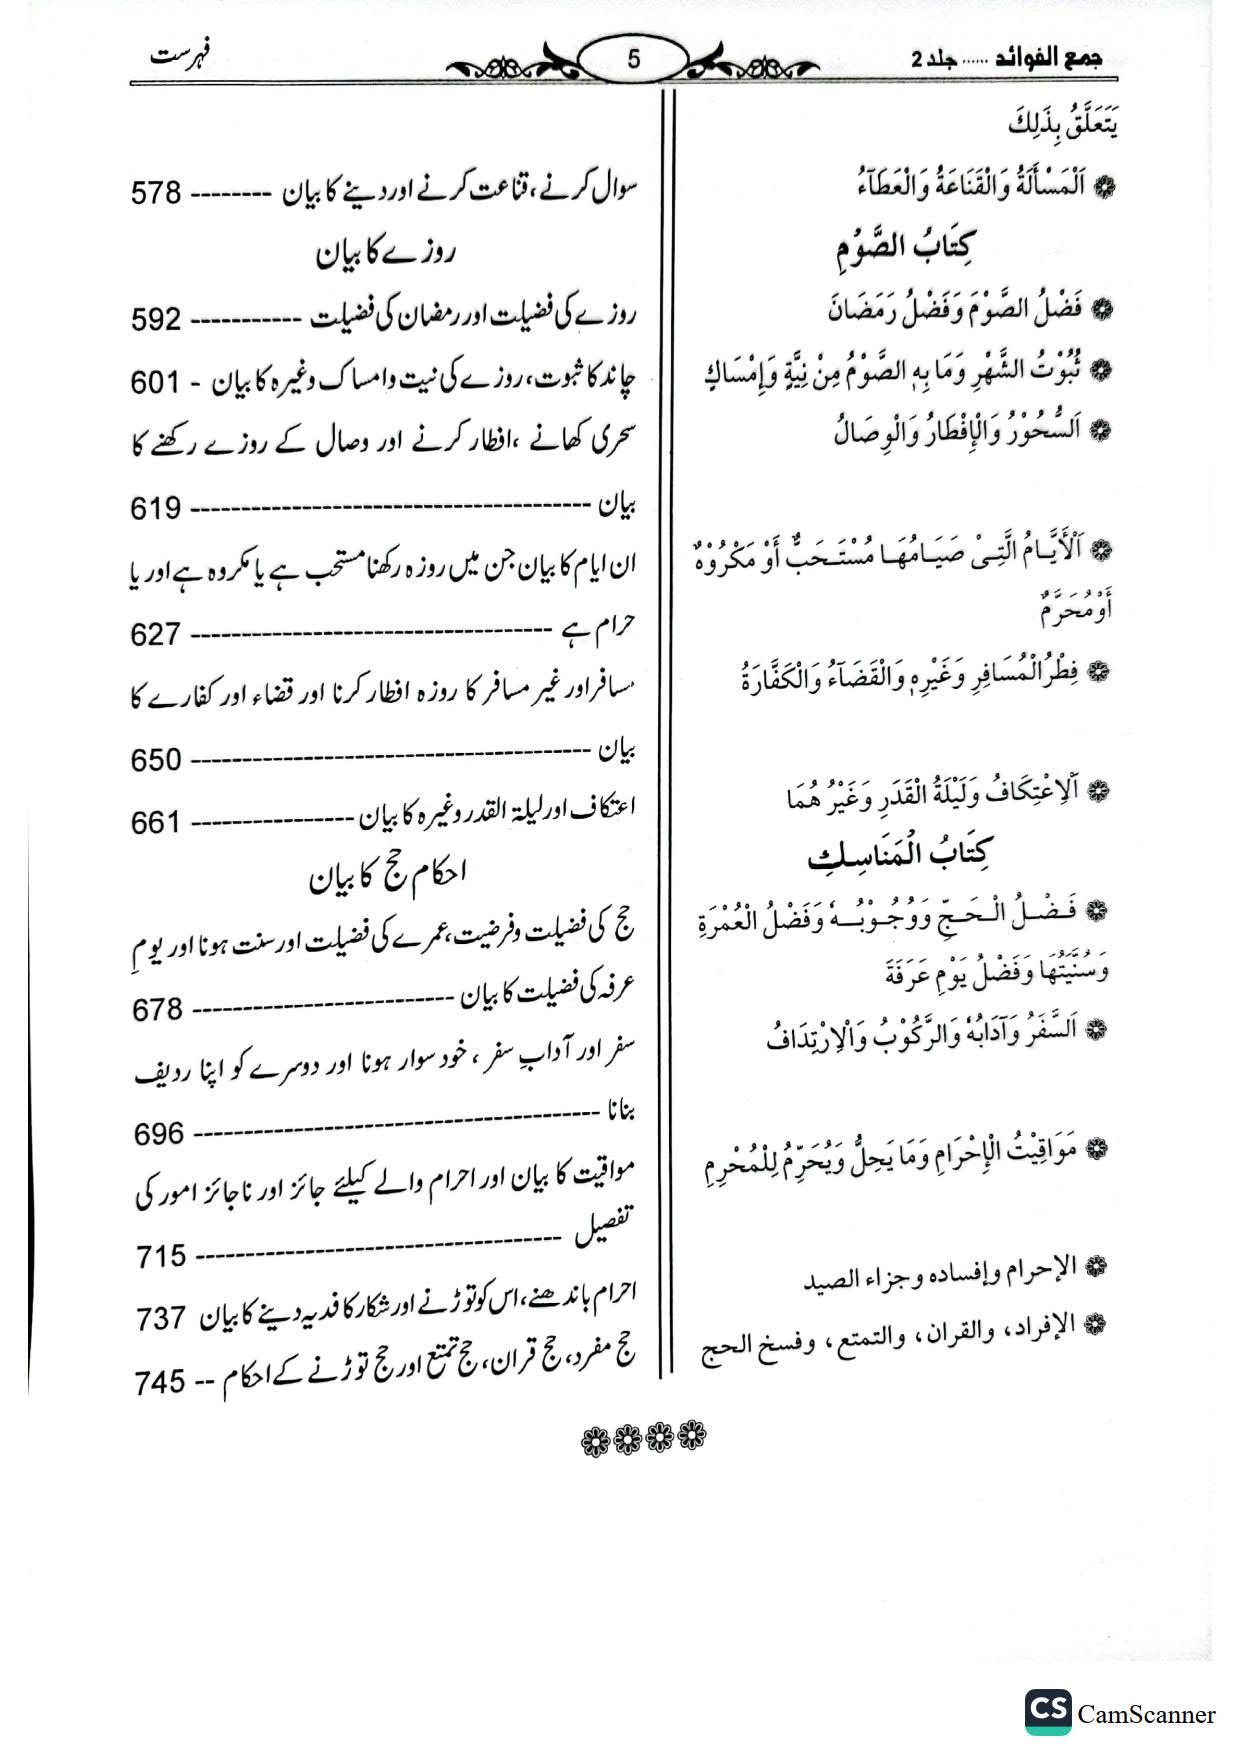 جمع الفوائد ...... جلد 2
5
فہرست
يَتَعَلَّقُ بِذَلِكَ
❁ اَلْمَسْأَلَةُ وَالْقَنَاعَةُ وَالْعَطَآءُ
كِتَابُ الصَّوْمِ
❁ فَضْلُ الصَّوْمَ وَفَضْلُ رَمَضَانَ
❁ ثُبُوْتُ الشَّهْرِ وَمَا بِهِ الصَّوْمُ مِنْ نِيَّةٍ وَإِمْسَاكٍ
❁ اَلسُّحُوْرُ وَالْإِفْطَارُ وَالْوِصَالُ
❁ اَلْأَيَّامُ الَّتِيْ صَيَامُهَا مُسْتَحَبٌّ أَوْ مَكْرُوْهٌ
أَوْمُحَرَّمٌ
❁ فِطْرُالْمُسَافِرِ وَغَيْرِهِ وَالْقَضَآءُ وَالْكَفَّارَةُ
❁ اَلِاعْتِكَافُ وَلَيْلَةُ الْقَدَرِ وَغَيْرُ هُمَا
كِتَابُ الْمَنَاسِكِ
❁ فَضْلُ الْحَجِّ وَوُجُوْبُهُ وَفَضْلُ الْعُمْرَةِ
وَسُنِّيَّتُهَا وَفَضْلُ يَوْمِ عَرَفَةَ
❁ اَلسَّفَرُ وَآدَابُهُ وَالرَّكُوْبُ وَالْاِرْتِدَافُ
❁ مَوَاقِيْتُ الْإِحْرَامِ وَمَا يَحِلُّ وَيُحَرِّمُ لِلْمُحْرِمِ
❁ الإحرام وإفساده وجزاء الصيد
❁ الإفراد، والقران، والتمتع، وفسخ الحج
سوال کرنے، قناعت کرنے اور دینے کا بیان -------- 578
روزے کا بیان
روزے کی فضیلت اور رمضان کی فضیلت ----------- 592
چاند کا ثبوت، روزے کی نیت وامساک وغیرہ کا بیان - 601
سحری کھانے، افطار کرنے اور وصال کے روزے رکھنے کا
بیان ---------------------------------------- 619
ان ایام کا بیان جن میں روزہ رکھنا مستحب ہے یا مکروہ ہے اور یا
حرام ہے ------------------------------------ 627
مسافر اور غیر مسافر کا روزہ افطار کرنا اور قضاء اور کفارے کا
بیان ---------------------------------------- 650
اعتکاف اور لیلۃ القدر وغیرہ کا بیان ---------------- 661
احکام حج کا بیان
حج کی فضیلت وفرضیت، عمرے کی فضیلت اور سنت ہونا اور یومِ
عرفہ کی فضیلت کا بیان -------------------------- 678
سفر اور آدابِ سفر، خود سوار ہونا اور دوسرے کو اپنا ردیف
بنانا ---------------------------------------- 696
مواقیت کا بیان اور احرام والے کیلئے جائز اور ناجائز امور کی
تفصیل ------------------------------------ 715
احرام باندھنے، اس کو توڑنے اور شکار کا فدیہ دینے کا بیان 737
حج مفرد، حج قران، حج تمتع اور حج توڑنے کے احکام -- 745
❁❁❁❁
CS CamScanner